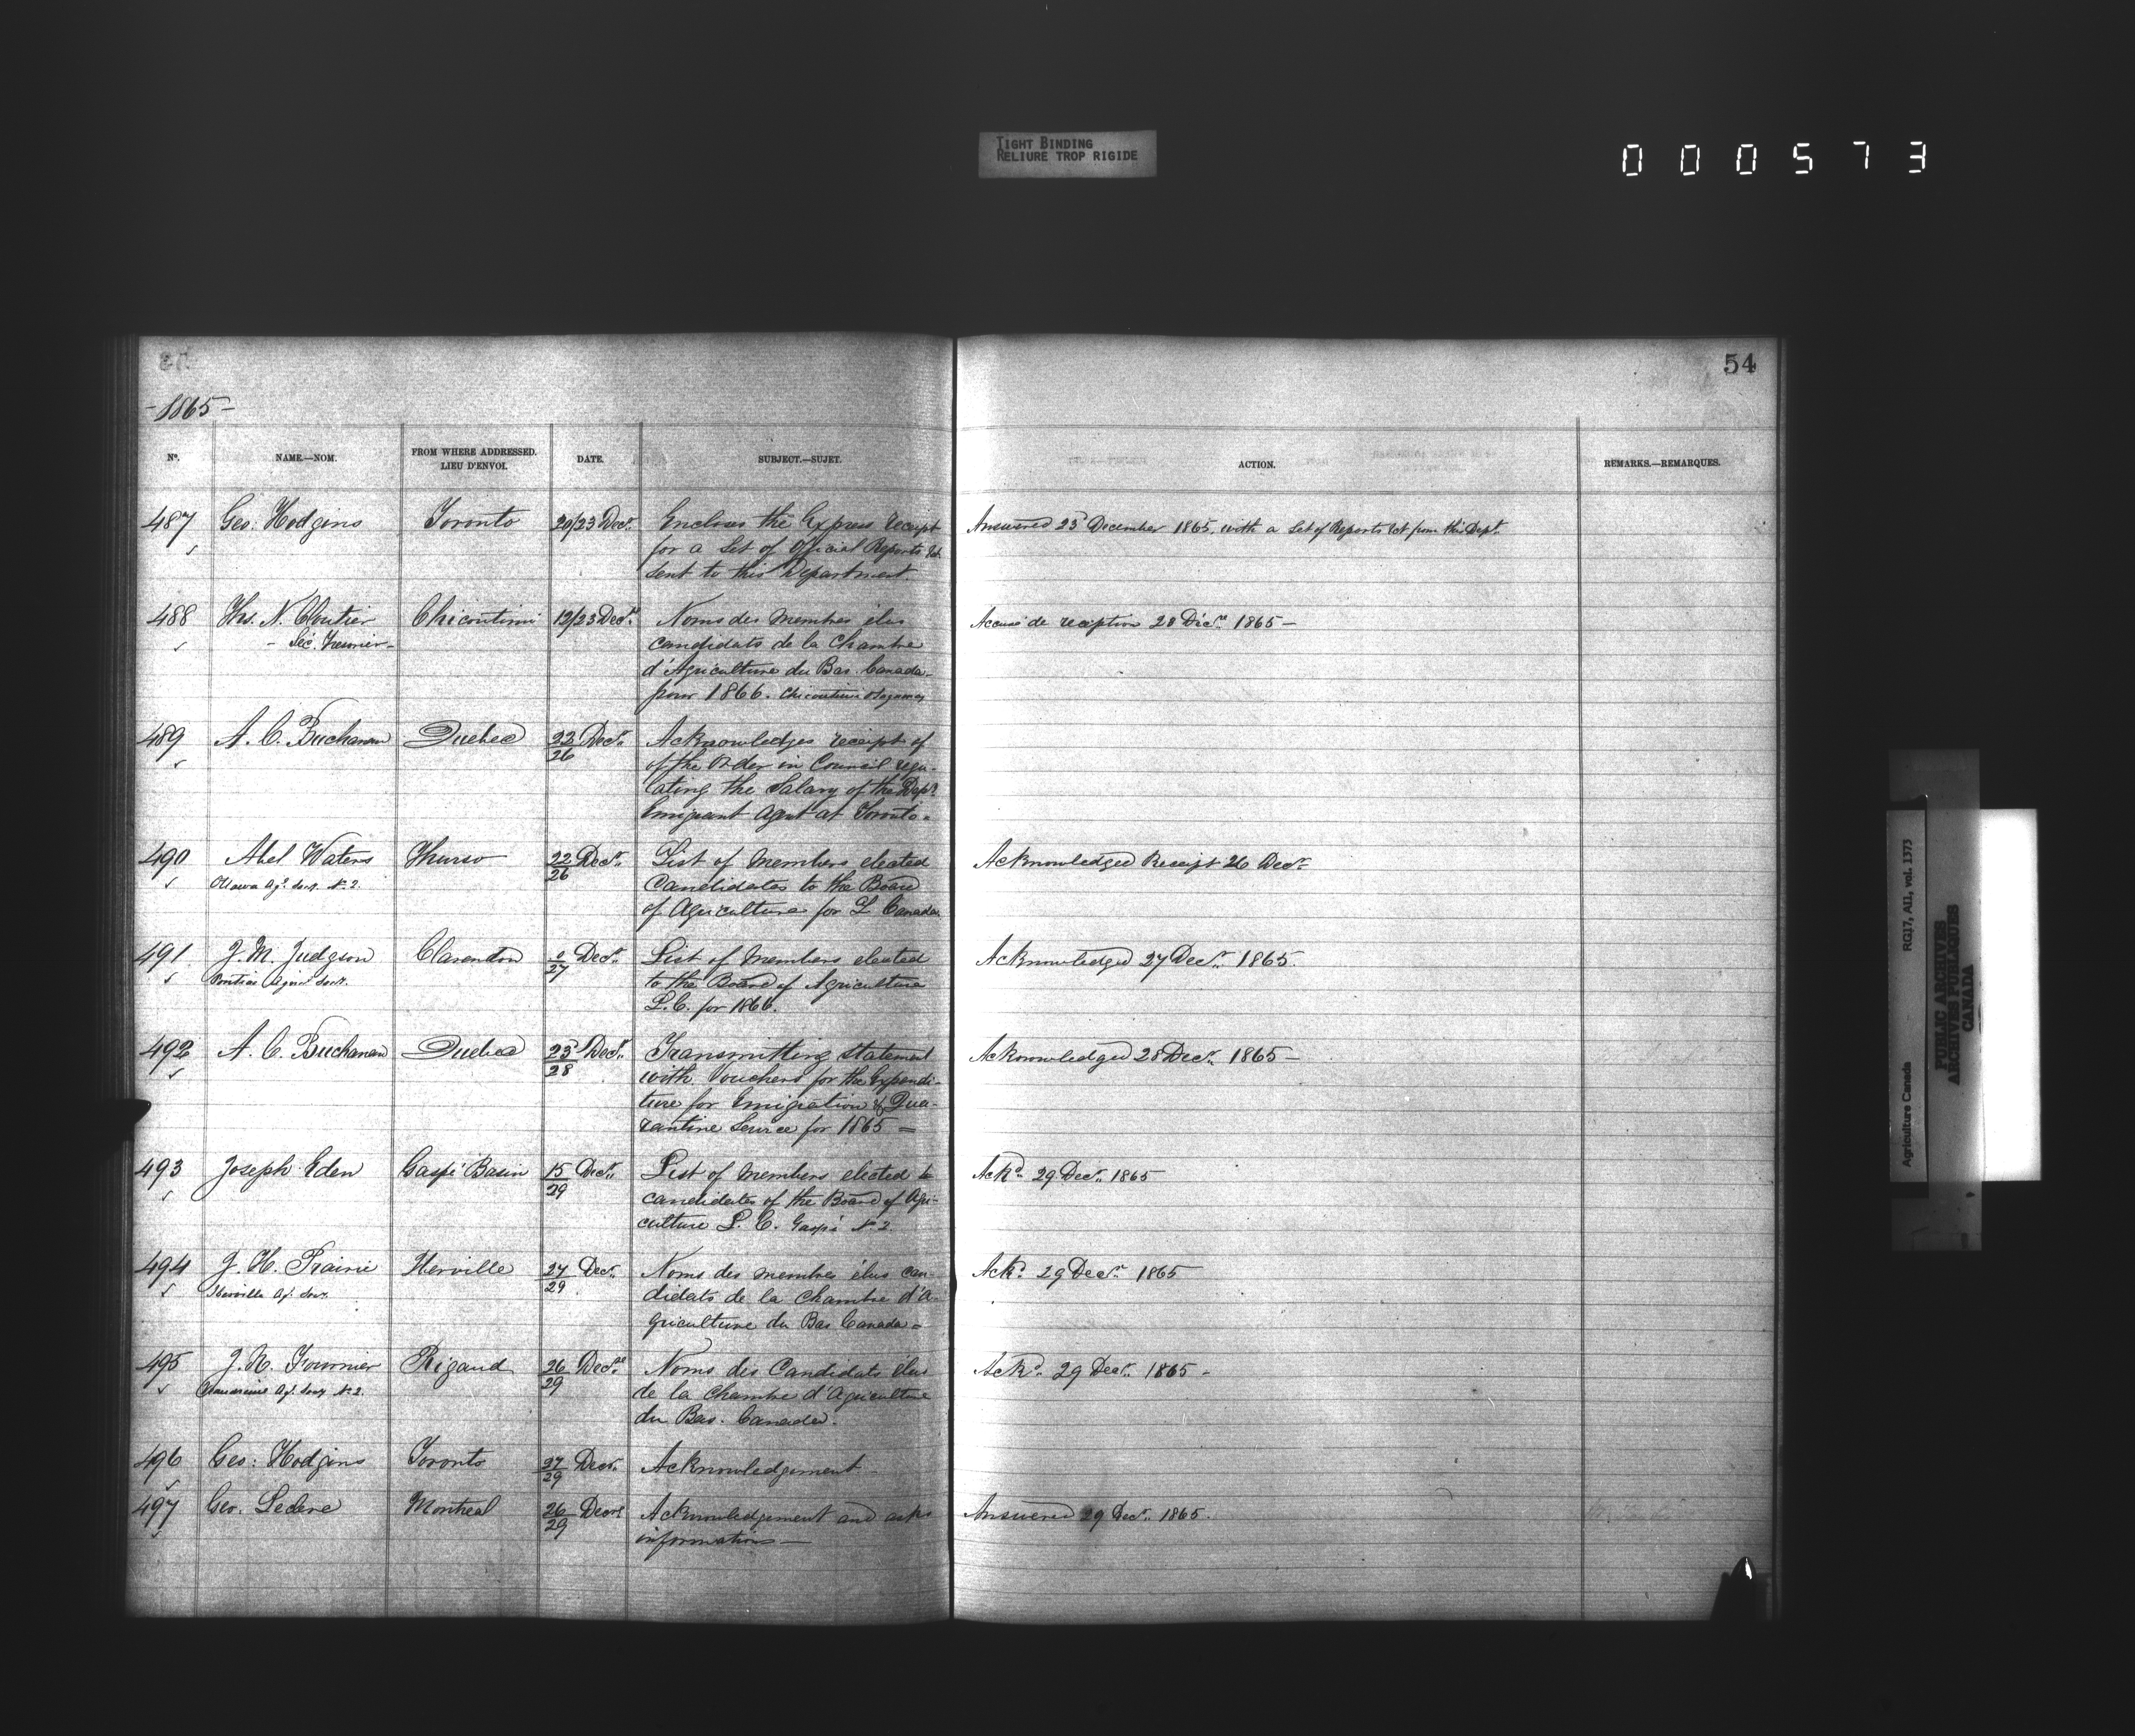 TIGHT BINDING
RELIURE TROP RIGIDE
000573
54
-1865-
No. NAME.—NOM. FROM WHERE ADDRESSED. LIEU D'ENVOI. DATE. SUBJECT.—SUJET. ACTION. REMARKS.—REMARQUES.
487 Geo. Hodgins Toronto 20/23 Decr. Encloses the Express receipt Answered 23d December 1865. with a Set of Reports &ct from this Dept.
for a Set of Official Reports &ct
sent to this Department
488 Ths. N. Cloutier Chicoutimi 12/23 Decr. Noms des Membres élus Accusé de reception 28 Décr. 1865 —
- Séc. Trésorier - candidats de la Chambre
d'Agriculture du Bas. Canada
pour 1866. Chicoutimi & Saguenay
489 A. C. Buchanan Quebec 22/26 Decr. Acknowledges receipt of
of the Order in Council regu-
lating the Salary of the Dept.
Emigrant Agent at Toronto.
490 Abel Waters Thurso 22/26 Decr. List of Members elected Acknowledged Receipt 26 Decr.
Ottawa Agl. Socy. No. 2. Candidates to the Board
of Agriculture for L Canada
491 J. M. Judgson Clarendon 27 Decr. List of Members elected Acknowledged 27 Decr. 1865.
Pontiac Agricl Socy. to the Board of Agriculture
L. C. for 1866.
492 A. C. Buchanan Quebec 23/28 Decr. Transmitting statement Acknowledged 28 Decr. 1865 —
with Vouchers for the Expendi-
ture for Emigration & Qua-
rantine Service for 1865 =
493 Joseph Eden Gaspé Basin 15/29 Decr. List of Members elected to Ackd. 29 Decr. 1865
candidates of the Board of Agri-
culture L. C. Gaspé No. 2.
494 J. H. Prairie Iberville 27/29 Decr. Noms des membres élus can- Ackd. 29 Decr. 1865
Iberville Agl. Socy. didats de la Chambre d'A-
griculture du Bas Canada =
495 J. N. Fournier Rigaud 26/29 Decr. Noms des Candidats élus Ackd. 29 Decr. 1865 -
Vaudreuil Agl. Socy No. 2. de la Chambre d'Agriculture
du Bas. Canada.
496 Geo: Hodgins Toronto 27/29 Decr. Acknowledgement
497 Geo. Leclere Montreal 26/29 Decr. Acknowledgement and asks Answered 29 Decr. 1865.
informations —
Agriculture Canada RG17, AII, vol. 1373
PUBLIC ARCHIVES
ARCHIVES PUBLIQUES
CANADA